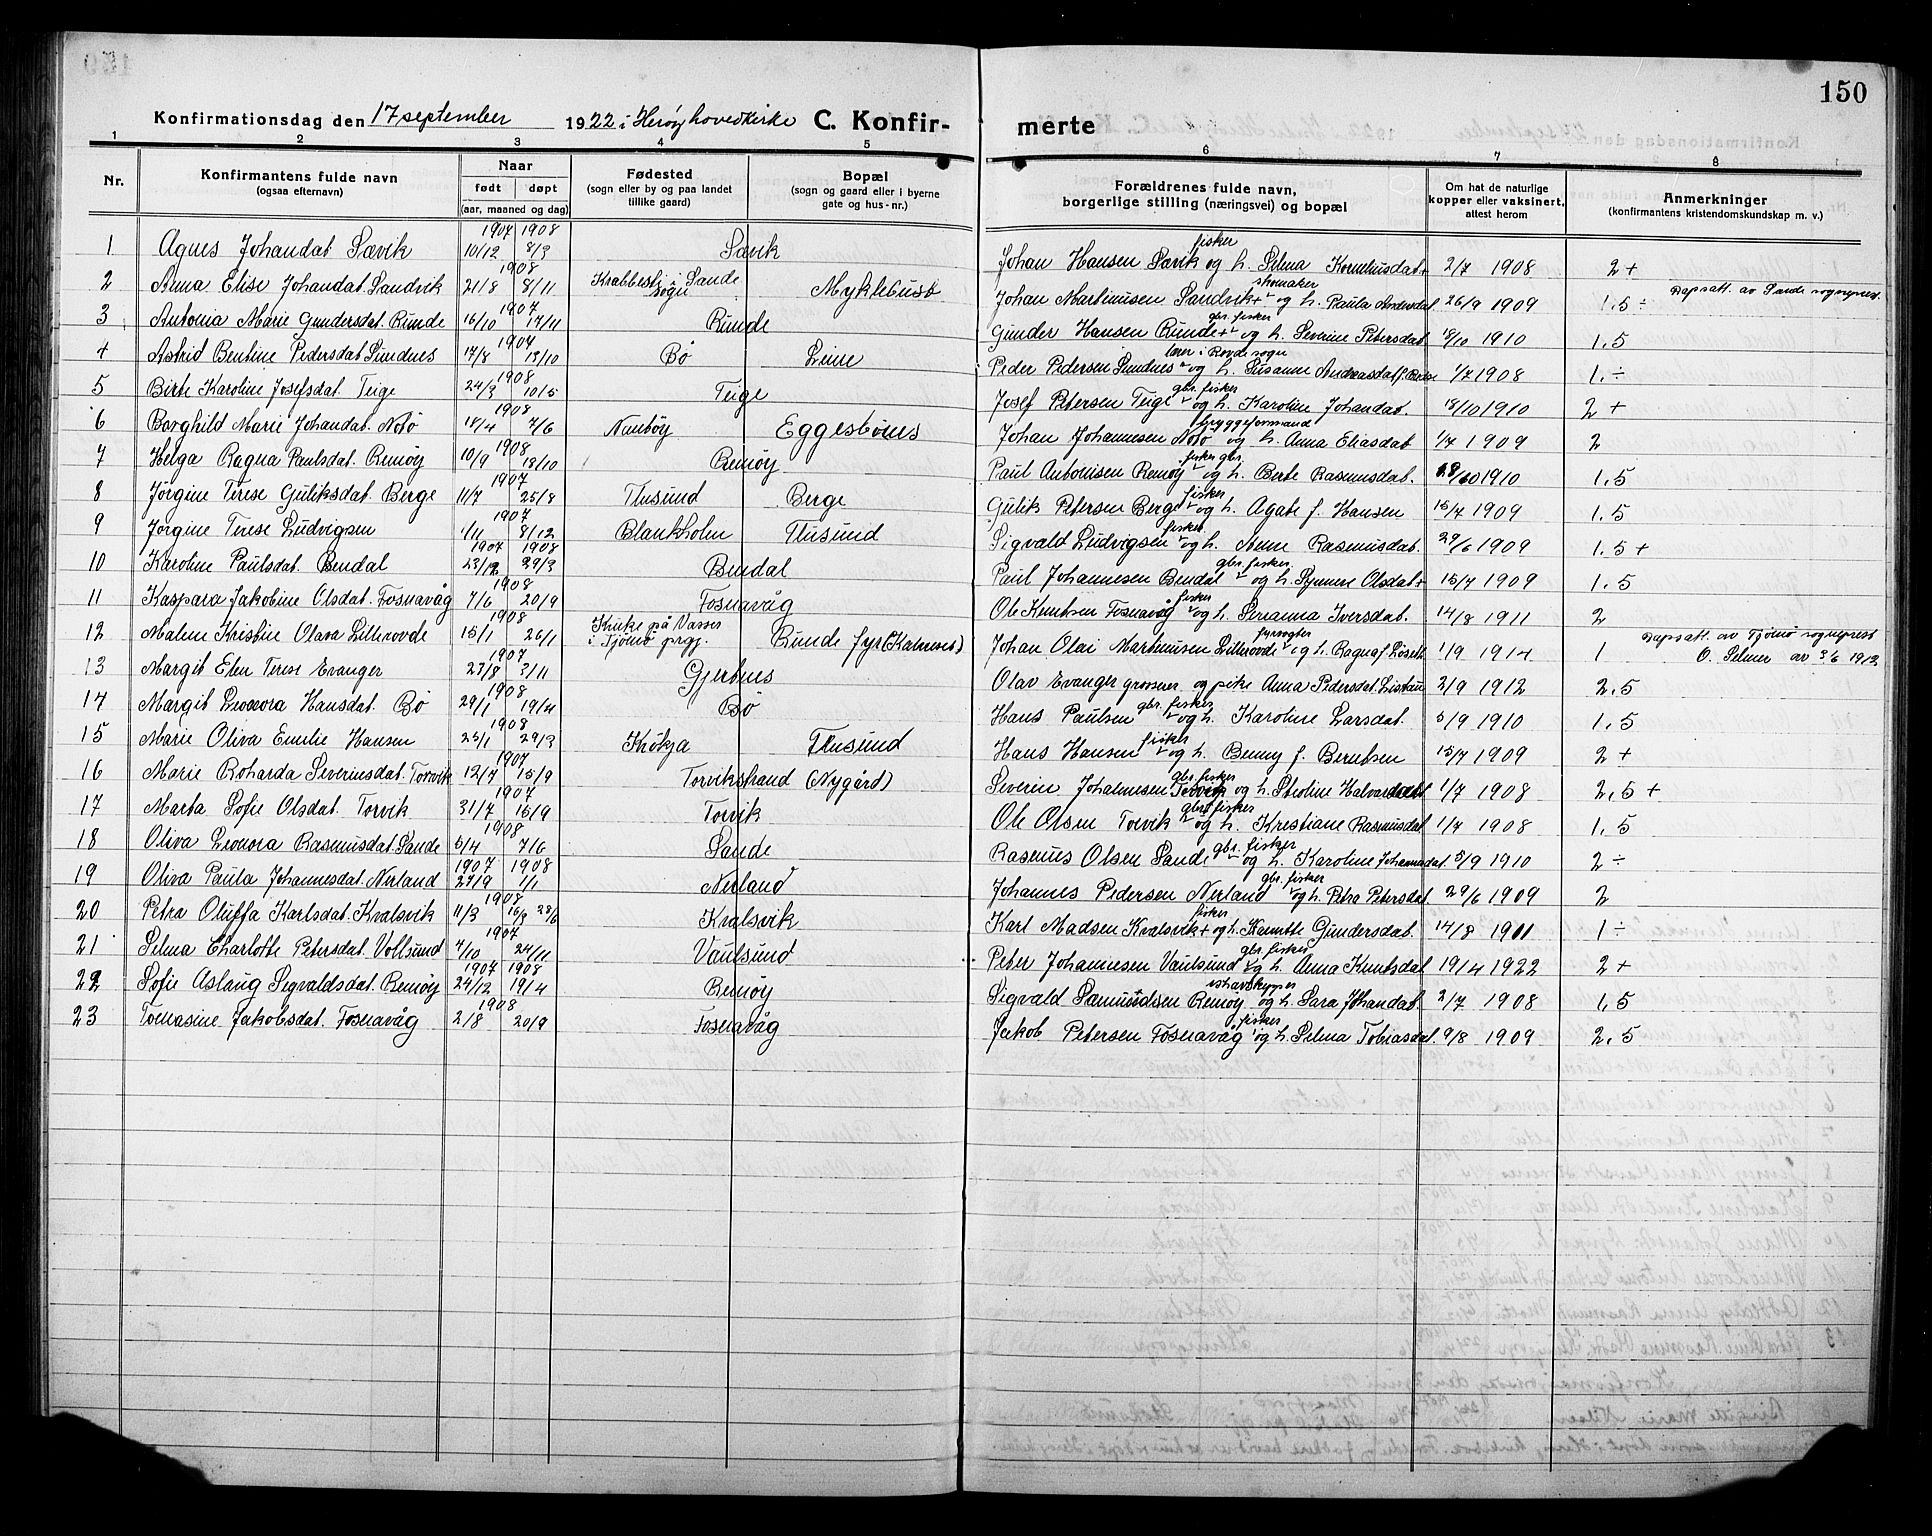 150
Konfirmationsdag den 17 september 1922 i Herøy hovedkirke C. Konfirmerte
1 2 3 4 5 6 7 8
Nr.
Konfirmantens fulde navn
(ogsaa efternavn)
Naar
født døpt
(aar, maaned og dag)
Fødested
(sogn eller by og paa landet
tillike gaard)
Bopæl
(sogn og gaard eller i byerne
gate og hus-nr.)
Forældrenes fulde navn,
borgerlige stilling (næringsvei) og bopæl
Om hat de naturlige
kopper eller vaksinert,
attest herom
Anmerkninger
(konfirmantens kristendomskundskap m. v.)
1 Agnes Johansdat Sævik 1907 10/12 1908 8/3 Sævik Johan Hansen Sævik fisker og h. Selma Korneliusdat + 2/7 1908 2+
2 Anna Elise Johandat. Sandvik 1908 21/8 8/11 Krabbest. i Sande sogn Myklebust Johan Martinusen Sandvik + skomaker og h. Paula Andersdat 26/9 1909 1.5 ÷ Dapsatt. av Sande sogneprest.
3 Antonia Marie Gundersdat. Runde 1907 16/10 17/11 Runde Gunder Hansen Runde + gbr. fisker og h. Severine Petersdat 18/10 1910 1.5
4 Astrid Bentine Pedersdat Sundnes 1907 17/8 13/10 Bø Leine Peder Pedersen Sundnes lærer i Rovde sogn og h. Susanne Andreasdat 1/7 1908 1.÷
5 Birte Karoline Josefsdat. Teige 1908 24/3 10/5 Teige Josef Petersen Teige gbr. fisker og h. Karoline Johandat. 18/10 1910 2+
6 Borghild Marie Johandat. Notø 1908 14/4 7/6 Nautøy Eggesbønes Johan Johannesen Notø bryggeformand og h. Anna Eliasdat 1/7 1909 2
7 Helga Ragna Paulsdat. Remøy 1908 10/9 18/10 Remøy Paul Antonisen Remøy fisker gbr. og h. Berte Rasmusdat. 1910 1.5
8 Jørgine Terese Guliksdat. Berge 1907 11/7 25/8 Flusund Berge Gulik Petersen Berge fisker og h. Agate f. Hansen 15/7 1909 1.5
9 Jørgine Terese Ludvigsen 1907 1/11 8/12 Blankholm Flusund Sigvald Ludvigsen fisker og h. Anne Rasmusdat. 29/6 1909 1.5+
10 Karoline Paulsdat. Bendal 1907 23/12 1908 29/3 Bendal Paul Johannesen Bendal gbr. fisker og h. Synnøve Olsdat + 15/7 1909 1.5
11 Kaspara Jakobine Olsdat. Fosnavåg 1908 7/6 20/9 Fosnavåg Ole Knutsen Fosnavåg fisker og h. Serianna Iversdat. 14/8 1911 2
12 Malene Kristine Olava Lillerovde 1908 15/1 26/1 på Vasser i Tjømø prgj. Runde fyr (Kalneset) Johan Olai Martinusen Lillerovde fyrvogter og h. Ragna f. 1/9 1914 1 Dapsatt. av Tjømø sogneprest O. Selmer av 3/6 1912
13 Margit Elen Terese Evanger 1907 27/8 3/11 Gjertnes Olav Evanger grosserer og pike Anna Pedersdat. 2/9 1912 2.5
14 Margit Leonora Hansdat. Bø 1908 29/1 19/4 Bø Hans Paulsen gbr. fisker og h. Karoline Larsdat. 5/9 1910 1.5
15 Marie Oliva Emilie Hansen 1908 23/1 29/3 Krøkja Flusund Hans Hansen fisker og h. Benny f. Berntsen 15/7 1909 2+
16 Marie Roharda Severinsdat. Torvik 1907 12/7 15/9 Torvikstrand (Nygård) Severin Johannesen Torvik gbr. fisker og h. Steoline Halvardsdat 1/7 1908 2,5+
17 Marta Sofie Olsdat. Torvik 1907 31/7 15/9 Torvik Ole Olsen Torvik gbr. fisker og h. Kristiane Rasmusdat 1/7 1908 1,5
18 Oliva Leonora Rasmusdat. Sande 1908 5/4 7/6 Sande Rasmus Olsen Sande gbr. fisker og h. Karoline Johannesdat 5/9 1910 2÷
19 Oliva Paula Johannesdat. Nerland 1907 27/9 1908 1/1 Nerland Johannes Pedersen Nerland gbr. fisker og h. Petra Petersdat 29/6 1909 2
20 Petra Oluffa Karlsdat. Kvalsvik 1908 11/3 Kvalsvik Karl Madsen Kvalsvik + fisker og h. Gundersdat. 14/8 1911 1÷
21 Selma Charlotte Petersdat. Vollsund 1907 4/10 24/11 Vaulsund Peter Johannesen Vaulsund gbr. fisker og h. Anna Knutsdat 19/4 1922 2+
22 Sofie Aslaug Sigvaldsdat. Remøy 1907 24/12 1908 19/4 Remøy Sigvald Samundsen Remøy ishavsskipper og h. Sara Johandat. 2/7 1908 1,5
23 Tomasine Jakobsdat. Fosnavåg 1908 2/8 20/9 Fosnavåg Jakob Petersen Fosnavåg fisker og h. Selma Tobiasdat. 9/8 1909 2.5